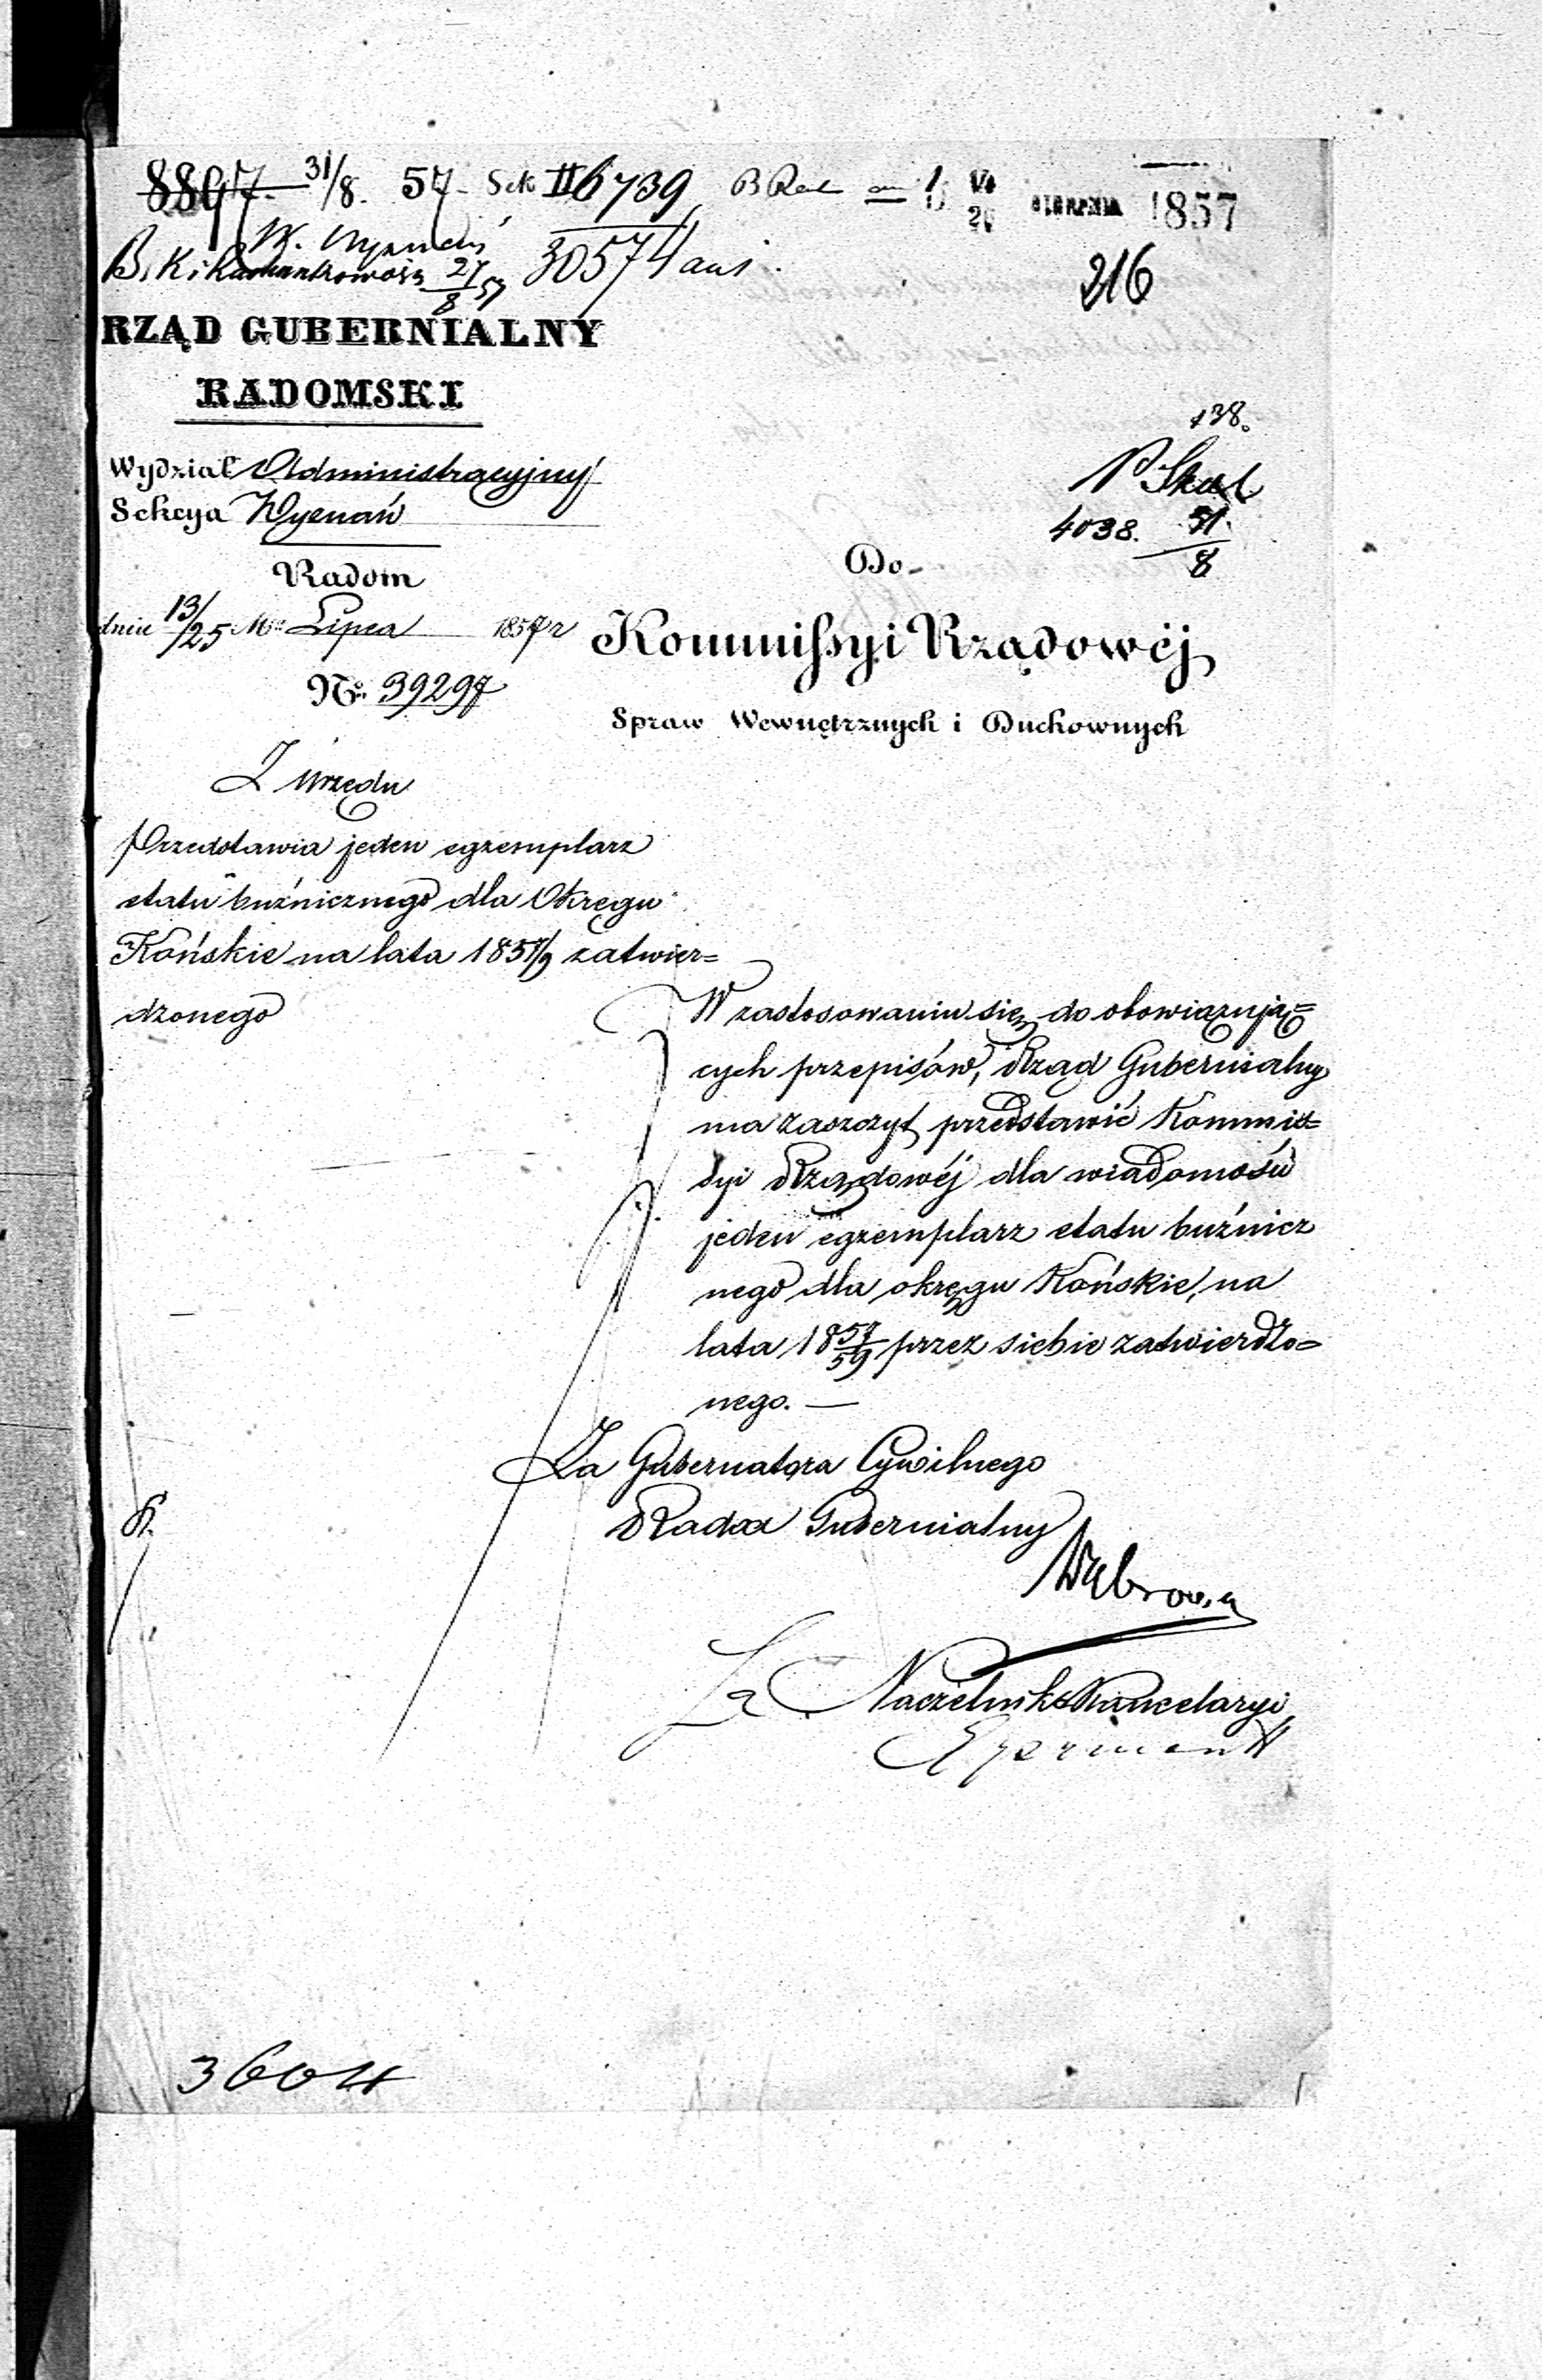 8897. 31/8. 57 Sek II 6739 B Rad 1857
W. Wyznań 30574 ans.
B. K i R 27/8 57
216
RZĄD GUBERNIALNY
RADOMSKI
138.
Wydział Administracyjny
Sekcya Wyznań
P Skarb
4038. 31/8
Radom
Do
dnia 13/25 Mca Lipca 1857 r
Kommissyi Rządowéj
No 39297
Spraw Wewnętrznych i Duchownych
Z Urzędu
Przedstawia jeden egzemplarz
etatu buźnicznego dla Okręgu
Końskie na lata 1857/9 zatwier=
dzonego
W zastosowaniu się do obowiązują=
cych przepisów, Rząd Gubernialny
ma zaszczyt przedstawić Kommis=
syi Rządowéj dla wiadomości
jeden egzemplarz etatu buźnicz
nego dla okręgu Końskie, na
lata 18 57/59 przez siebie zatwierdzo=
nego. —
Za Gubernatora Cywilnego
Radca Gubernialny
Za Naczelnika Kancelaryi
3604